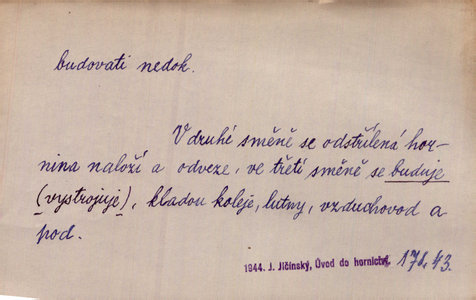 budovati nedok.
V druhé směně se odstřílená hor-
nina naloží a odveze, ve třetí směně se buduje
(vystrojuje), kladou koleje, lutny, vzduchovod a
pod.
1944. J. Jičínský, Úvod do hornictví. 178, 43.